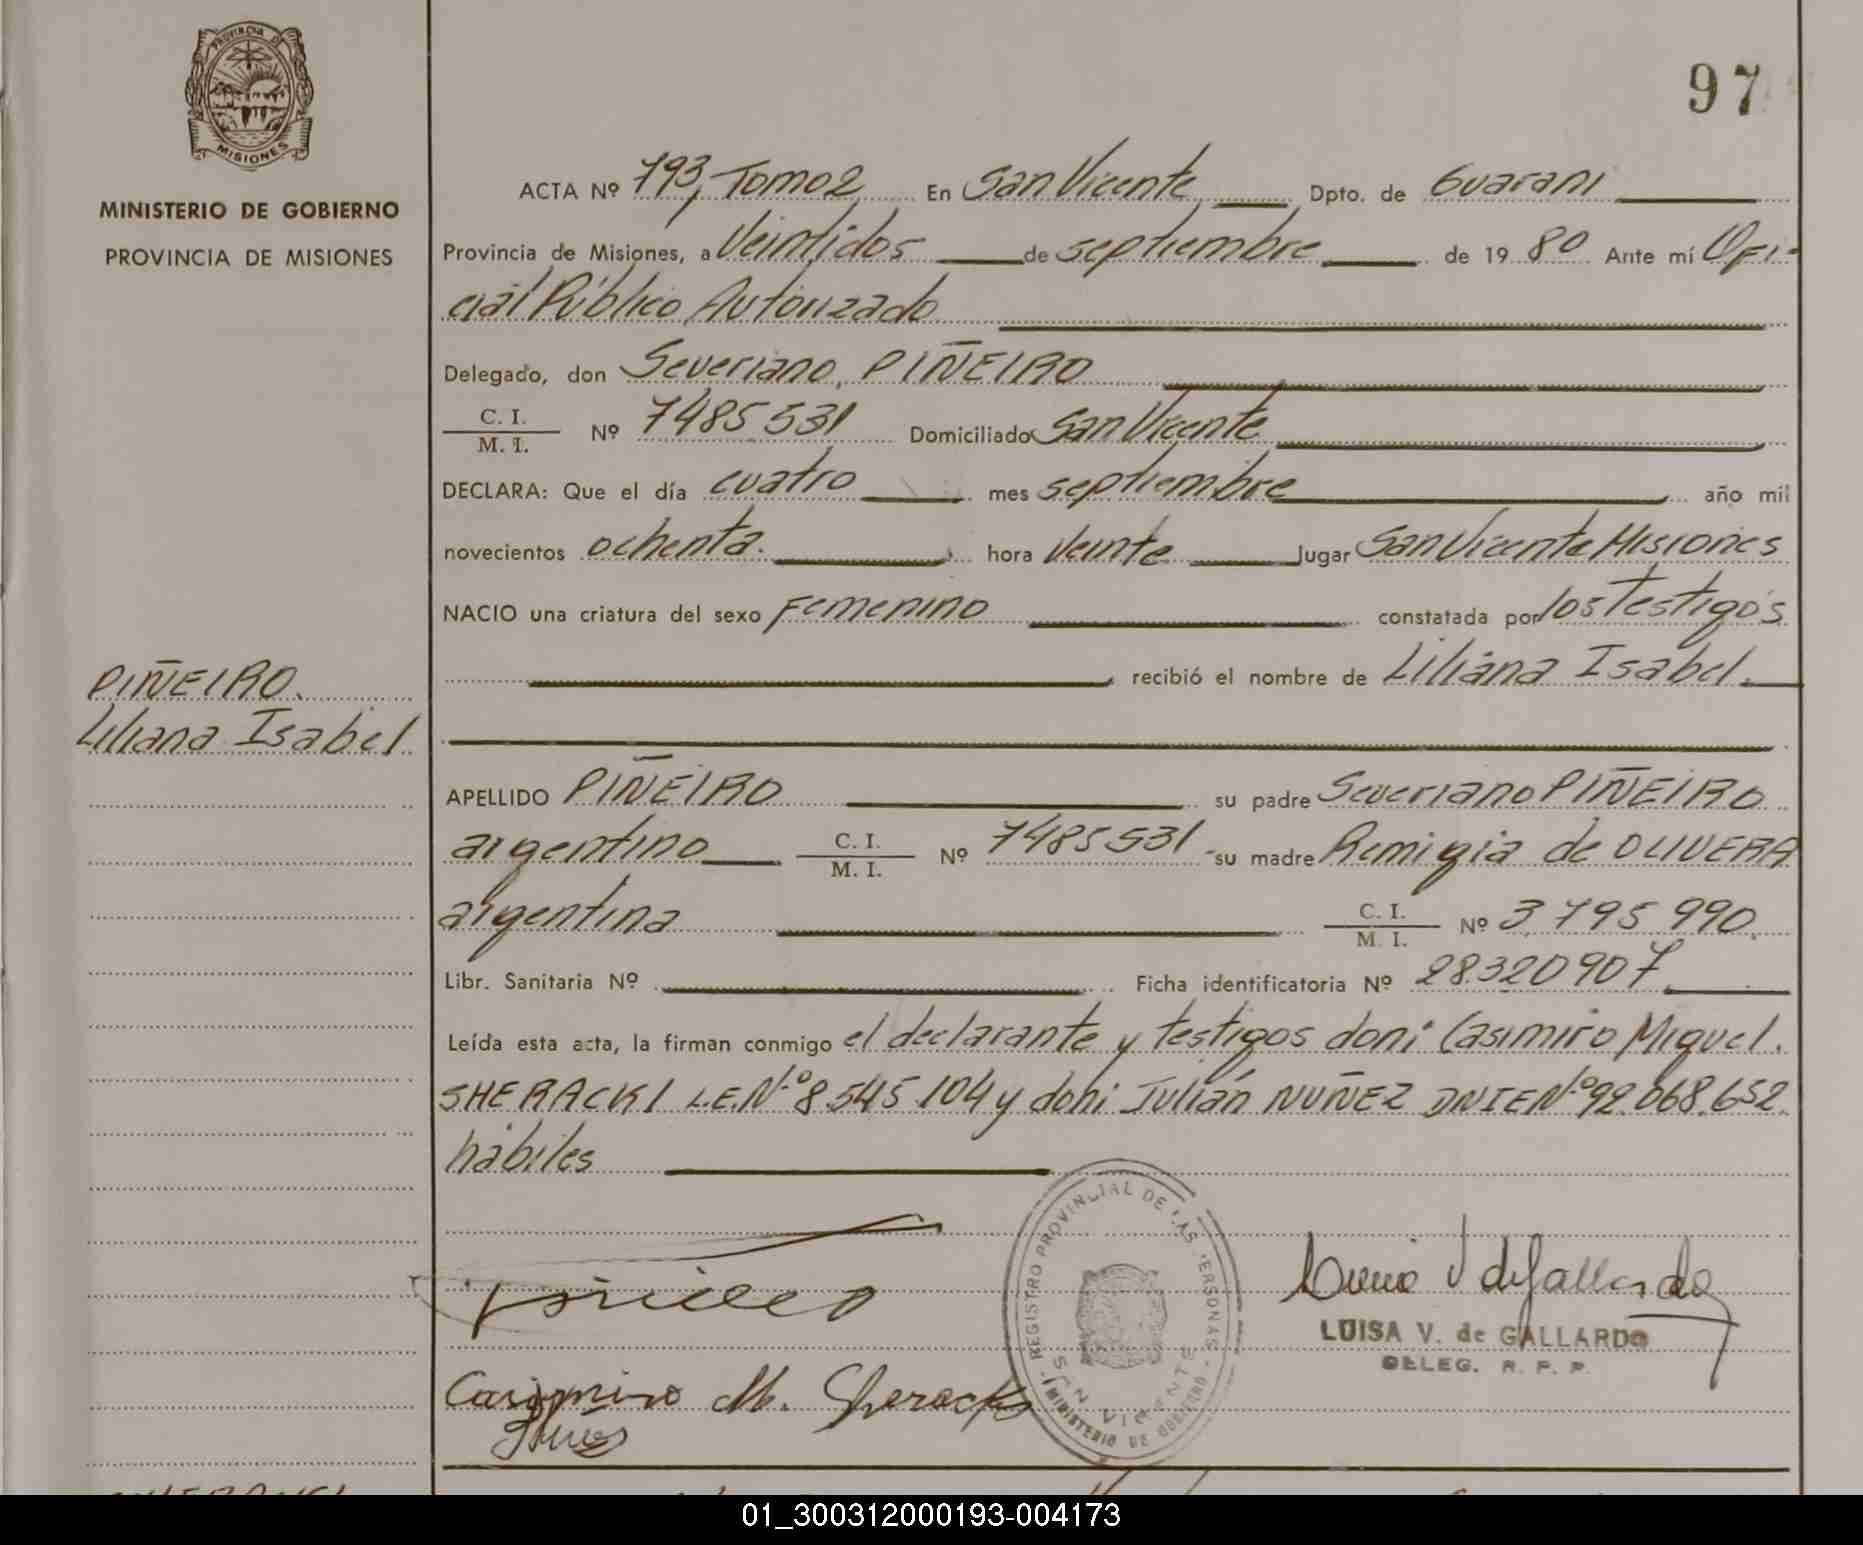 97
PROVINCIA DE
MISIONES
MINISTERIO DE GOBIERNO
PROVINCIA DE MISIONES
ACTA Nº 793, Tomo 2 En San Vicente Dpto. de Guarani
Provincia de Misiones, a Veintidos de septiembre de 19 80 Ante mí Ofi-
cial Público Autorizado
Delegado, don Severiano PIÑEIRO
C. I.
M. I. Nº 7485531 Domiciliado San Vicente
DECLARA: Que el día cuatro mes septiembre año mil
novecientos ochenta. hora Veinte lugar San Vicente Misiones
NACIO una criatura del sexo Femenino constatada por los Testigos
recibió el nombre de Liliana Isabel.
PIÑEIRO.
Liliana Isabel
APELLIDO PIÑEIRO su padre Severiano PIÑEIRO
argentino C. I.
M. I. Nº 7485531 su madre Remigia de OLIVERA
argentina C. I.
M. I. Nº 3.795.990.
Libr. Sanitaria Nº Ficha identificatoria Nº 28.320907
Leída esta acta, la firman conmigo el declarante y testigos don: Casimiro Miguel.
SHERACKI L.E.Nº 8.545.104 y don: Julián NUÑEZ DNIE Nº 92.068.652
hábiles
REGISTRO PROVINCIAL DE LAS PERSONAS
SAN VICENTE
MINISTERIO DE GOBIERNO
LUISA V. de GALLARDO
DELEG. R. P. P.
Casimiro M. Sheracki
01_300312000193-004173